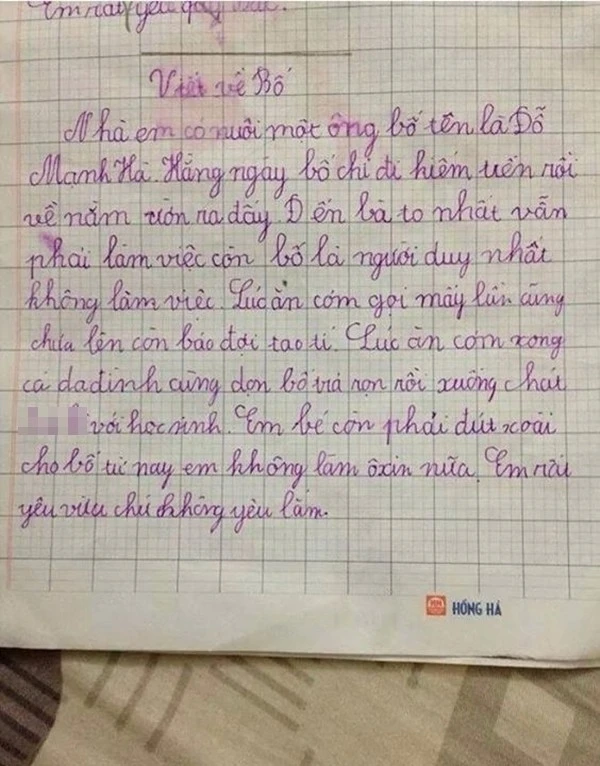 Em rất yêu
Viết về Bố
Nhà em có nuôi một ông bố tên là Đỗ
Mạnh Hà. Hằng ngày bố chỉ đi kiếm tiền rồi
về nằm ườn ra đấy. Đến bà to nhất vẫn
phải làm việc còn bố là người duy nhất
không làm việc. Lúc ăn cơm gọi mấy lần cũng
chưa lên còn bảo đợi tao tí. Lúc ăn cơm xong
cả da đình cùng dọn bố trả rọn rồi xuống chát
với học sinh. Em bé còn phải đút xoài
cho bố từ nay em không làm ôxin nữa. Em rất
yêu vừa chứ không yêu lắm.
HH HỒNG HÀ